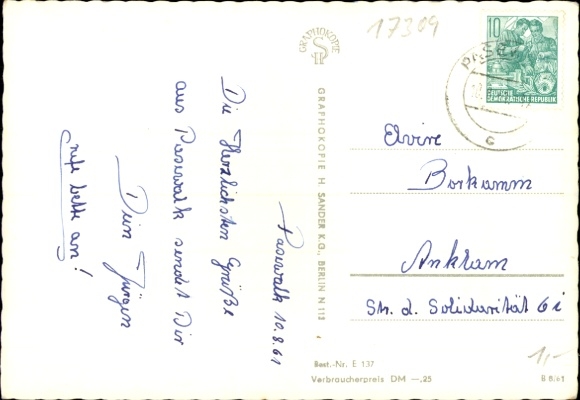 17309
GRAPHOKOPIE
10
DEUTSCHE
DEMOKRATISCHE REPUBLIK
PASEW
c
Paserwalk 10.8.61
Die Herzlichsten Grüße
aus Paserwalk sendet Dir
Dein Jürgen
rufe bitte an!
GRAPHOKOPIE H. SANDER K.G., BERLIN N 113
Elvire
Borkamm
Anklam
Str. d. Solidarität 6i
1,-
Best.-Nr. E 137
Verbraucherpreis DM —,25
B 8/61